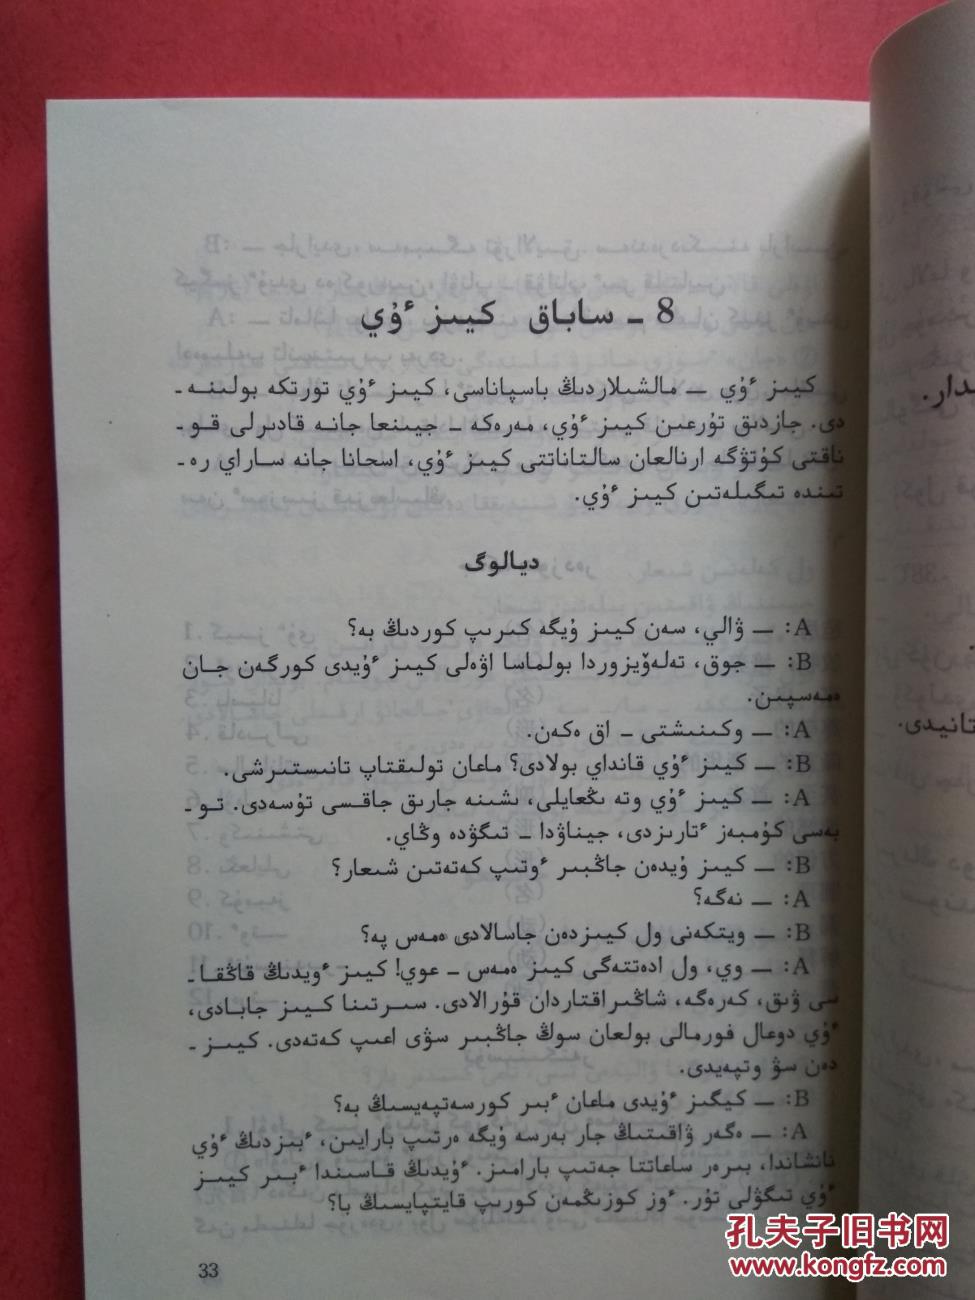 8 ـ ساباق كيىز ٴۇي
كيىز ٴۇي — مالشىلاردىڭ باسپاناسى، كيىز ٴۇي تورتكە بولىنە ـ
دى. جازدىق تۇرعىن كيىز ٴۇي، مەرەكە ـ جيىنعا جانە قادىرلى قو ـ
ناقتى كۇتۋگە ارنالعان سالتاناتتى كيىز ٴۇي، اسحانا جانە ساراي رە ـ
تىندە تىگىلەتىن كيىز ٴۇي.
ديالوگ
A: — ۋالي، سەن كيىز ۇيگە كىرىپ كوردىڭ بە؟
B: — جوق، تەلەۆيزوردا بولماسا اۋەلى كيىز ٴۇيدى كورگەن جان
ەمەسپىن.
A: — وكىنىشتى ـ اق ەكەن.
B: — كيىز ٴۇي قانداي بولادى؟ ماعان تولىقتاپ تانىستىرشى.
A: — كيىز ٴۇي وتە ىڭعايلى، ىشىنە جارىق جاقسى تۇسەدى. تو ـ
بەسى كۇمبەز ٴتارىزدى، جيناۋدا ـ تىگۋدە وڭاي.
B: — كيىز ۇيدەن جاڭبىر ٴوتىپ كەتەتىن شىعار؟
A: — نەگە؟
B: — ويتكەنى ول كيىزدەن جاسالادى ەمەس پە؟
A: — وي، ول ادەتتەگى كيىز ەمەس ـ عوي! كيىز ٴۇيدىڭ قاڭقا ـ
سى ۋىق، كەرەگە، شاڭىراقتاردان قۇرالادى. سىرتىنا كيىز جابادى،
ٴۇي دوعال فورمالى بولعان سوڭ جاڭبىر سۋى اعىپ كەتەدى. كيىز ـ
دەن سۋ وتپەيدى.
B: — كيگىز ٴۇيدى ماعان ٴبىر كورسەتپەيسىڭ بە؟
A: — ەگەر ۋاقىتىڭ جار بەرسە ۇيگە ەرتىپ بارايىن، ٴبىزدىڭ ٴۇي
نانشاندا، بىرەر ساعاتتا جەتىپ بارامىز. ٴۇيدىڭ قاسىندا ٴبىر كيىز
ٴۇي تىگۋلى تۇر. ٴوز كوزىڭمەن كورىپ قايتپايسىڭ با؟
33
دار.
تانيدى.
孔夫子旧书网
www.kongfz.com